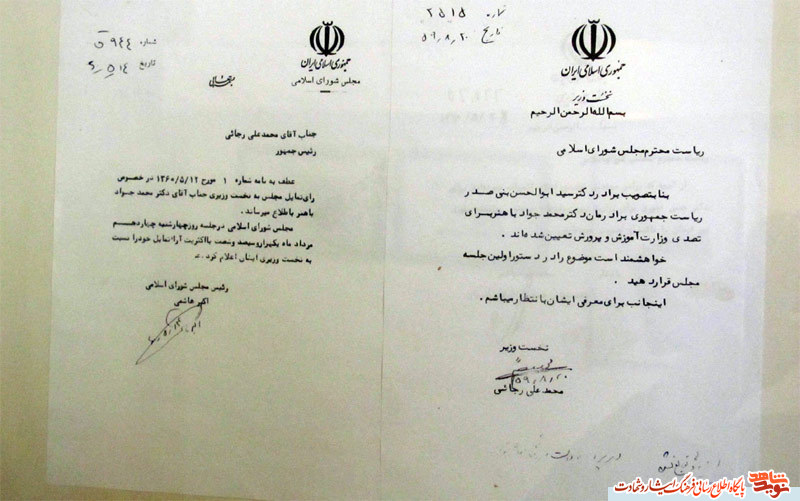 شماره ۲۵۱۵
تاریخ ۵۹٫۸٫۲۰
جمهوری اسلامی ایران
نخست وزیر
بسم الله الرحمن الرحیم
ریاست محترم مجلس شورای اسلامی
بنا بتصویب برادر دکتر سید ابوالحسن بنی صدر
ریاست جمهوری برادرمان دکتر محمد جواد باهنر برای
تصدی وزارت آموزش و پرورش تعیین شده اند .
خواهشمند است موضوع را در دستور اولین جلسه
مجلس قرار دهید .
اینجانب برای معرفی ایشان با نتظار میباشم .
نخست وزیر
۵۹٫۸٫۲۰
محمد علی رجائی
شماره ۹۴۴
تاریخ
جمهوری اسلامی ایران
مجلس شورای اسلامی
جناب آقای محمد علی رجائی
رئیس جمهور
عطف به نامه شماره ۱ مورخ ۱۳۶۰/۵/۱۲ در خصوص
رای تمایل مجلس به نخست وزیری جناب آقای دکتر محمد جواد
باهنر باطلاع میرساند .
مجلس شورای اسلامی در جلسه روز چهارشنبه چهاردهم
مرداد ماه یکهزار و سیصد و شصت با اکثریت آرا تمایل خود را نسبت
به نخست وزیری ایشان اعلام کرد .
رئیس مجلس شورای اسلامی
اکبر هاشمی
نوید شاهد
پایگاه اطلاع رسانی فرهنگ ایثار و شهادت